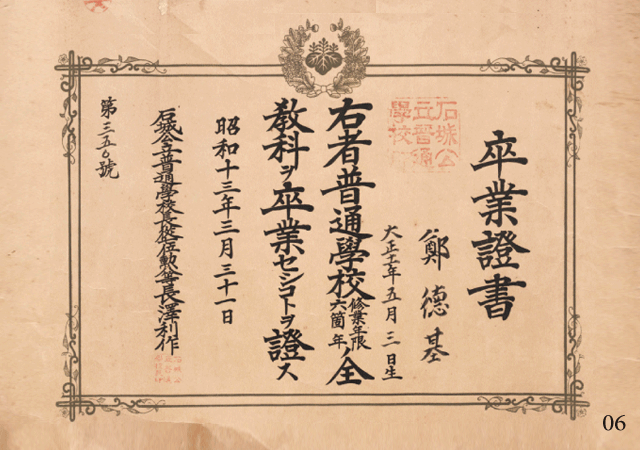 卒業證書
石城公
立普通
學校
鄭德基
大正十一年五月三日生
右者普通學校修業年限六箇年ノ全
教科ヲ卒業セシコトヲ證ス
昭和十三年三月三十一日
石城公立普通學校長從七位勲八等長澤利作
第三五〇號
06